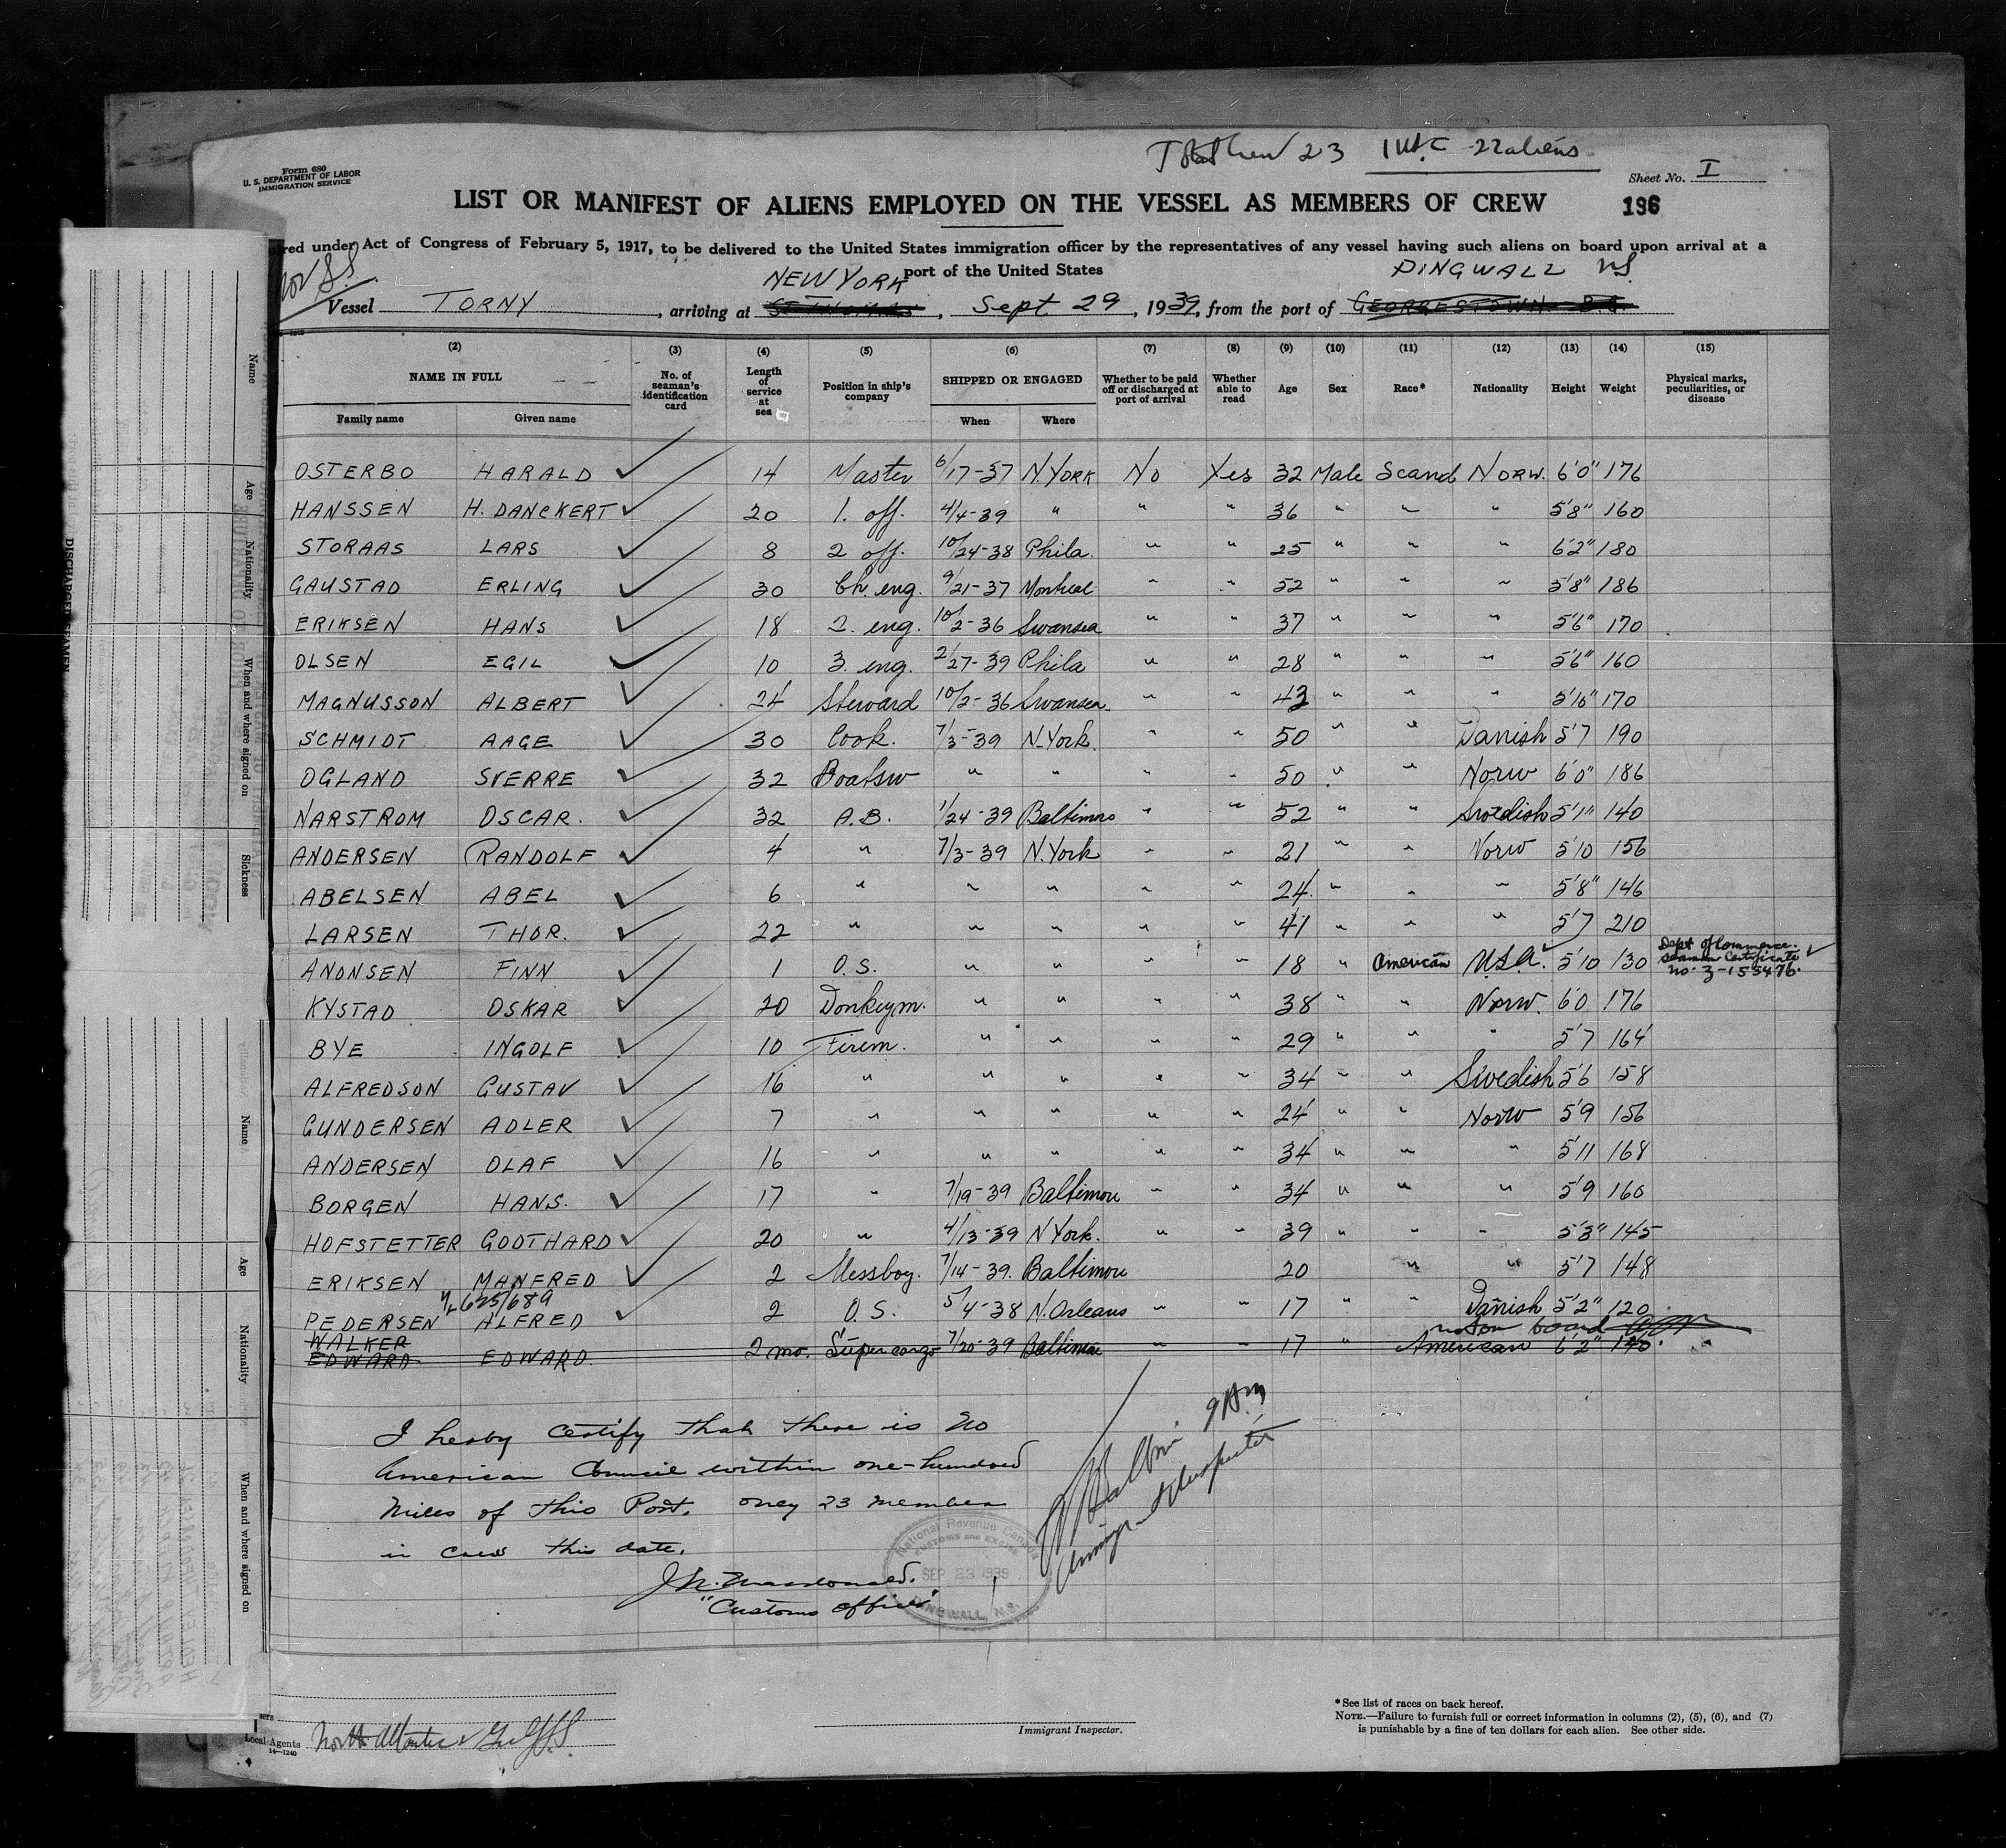 Total Crew 23 1 USC 22 aliens
Form 680
U. S. DEPARTMENT OF LABOR
IMMIGRATION SERVICE
Sheet No. I
LIST OR MANIFEST OF ALIENS EMPLOYED ON THE VESSEL AS MEMBERS OF CREW 196
red under Act of Congress of February 5, 1917, to be delivered to the United States immigration officer by the representatives of any vessel having such aliens on board upon arrival at a
port of the United States
Nor SS
NEW YORK DINGWALL NS.
Vessel TORNY, arriving at ST THOMAS, Sept 29, 1939, from the port of GEORGESTOWN B.G.
(2) (3) (4) (5) (6) (7) (8) (9) (10) (11) (12) (13) (14) (15)
NAME IN FULL No. of seaman's identification card Length of service at sea Position in ship's company SHIPPED OR ENGAGED Whether to be paid off or discharged at port of arrival Whether able to read Age Sex Race* Nationality Height Weight Physical marks, peculiarities, or disease
Family name Given name When Where
OSTERBO HARALD ✓ 14 Master 6/17-37 N.YORK No Yes 32 Male Scand NORW. 6'0" 176
HANSSEN H. DANCKERT ✓ 20 1. off. 4/4-39 " " " 36 " " " 5'8" 160
STORAAS LARS ✓ 8 2 off. 10/24-38 Phila. " " 25 " " " 6'2" 180
GAUSTAD ERLING ✓ 30 Ch. eng. 9/21-37 Montreal " " 52 " " " 5'8" 186
ERIKSEN HANS ✓ 18 2. eng. 10/2-36 Swansea " " 37 " " " 5'6" 170
OLSEN EGIL ✓ 10 3. eng. 2/27-39 Phila " " 28 " " " 5'6" 160
MAGNUSSON ALBERT ✓ 24 Steward 10/2-36 Swansea. " " 43 " " " 170
SCHMIDT AAGE ✓ 30 Cook. 7/3-39 N-York. " " 50 " " Danish 5'7 190
OGLAND SVERRE ✓ 32 Boatsw " " " " 50 " " Norw 6'0" 186
NARSTROM OSCAR. ✓ 32 A.B. 1/24-39 Baltimore " " 52 " " Swedish 5'1" 140
ANDERSEN RANDOLF ✓ 4 " 7/3-39 N.York " " 21 " " Norw 5'10 156
ABELSEN ABEL ✓ 6 " " " " " 24 " " " 5'8" 146
LARSEN THOR. ✓ 22 " " " " " 41 " " " 5'7 210
ANONSEN FINN ✓ 1 O.S. " " " " 18 " American U.S.A. ✓ 5'10 130 Dept of Commerce. Seaman Certificate ✓ no. Z-155476.
KYSTAD OSKAR ✓ 20 Donkeym. " " " " 38 " " Norw. 6'0 176
BYE INGOLF ✓ 10 Firem. " " " " 29 " " " 5'7 164
ALFREDSON GUSTAV ✓ 16 " " " " " 34 " " Swedish 5'6 158
GUNDERSEN ADLER ✓ 7 " " " " " 24 " " Norw 5'9 156
ANDERSEN OLAF ✓ 16 " " " " " 34 " " " 5'11 168
BORGEN HANS. ✓ 17 " 7/19-39 Baltimore " " 34 " " " 5'9 160
HOFSTETTER GOTTHARD ✓ 20 " 4/13-39 N York. " " 39 " " " 5'3" 145
ERIKSEN MANFRED ✓ 2 Messboy. 7/14-39. Baltimore 20 " " 5'7 148
625/689
PEDERSEN ALFRED ✓ 2 O.S. 5/4-38 N.Orleans " " 17 " " Danish 5'2" 120
not on board
WALKER
EDWARD EDWARD. 2 mo. Supercargo 7/20-39 Baltimore " " 17 " American 6'2"
I herby certify that there is no
American Councie within one-hundred
miles of this Port. oney 23 member
in crew this date.
J.N. Macdonald.
"Customs officer"
National Revenue Canada
CUSTOMS and EXCISE
SEP 23 1939
DINGWALL, N.S.
9 AM
Immigrant Inspector
Immigrant Inspector.
*See list of races on back hereof.
NOTE.—Failure to furnish full or correct information in columns (2), (5), (6), and (7)
is punishable by a fine of ten dollars for each alien. See other side.
Local Agents North Atlantic & Gulf SS.
14—1240
Name
Age
Nationality
When and where signed on
Sickness
DISCHARGED SEAMEN
Name
Age
Nationality
When and where signed on